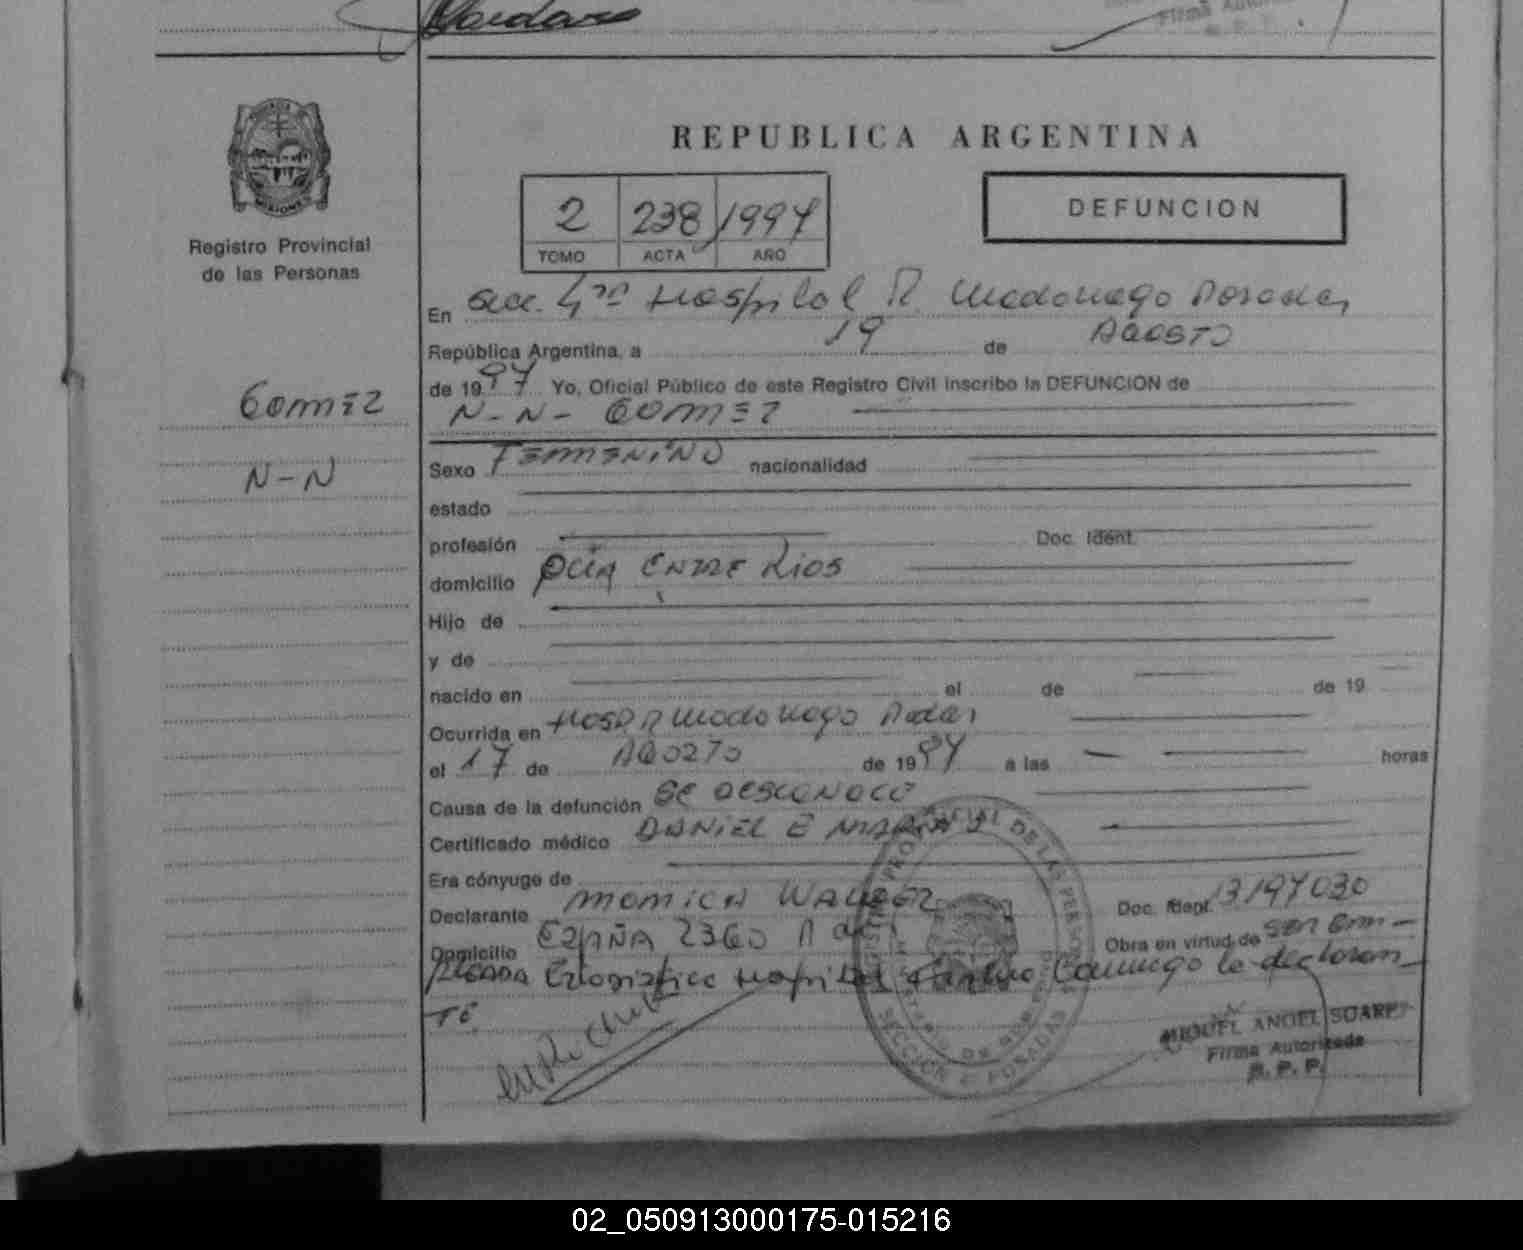 Firma Autori
REPUBLICA ARGENTINA
2 238 1997
TOMO ACTA AÑO
DEFUNCION
Registro Provincial
de las Personas
GOMEZ
N-N
En Secc. 4ta Hospital R. Madariaga Posadas,
República Argentina, a 19 de AGOSTO
de 1997 Yo, Oficial Público de este Registro Civil inscribo la DEFUNCION de
N-N- GOMEZ
Sexo FEMENINO nacionalidad
estado
profesión Doc. Ident.
domicilio PCIA ENTRE RIOS
Hijo de
y de
nacido en el de de 19
Ocurrida en HOSP R Madariaga Pdas
el 17 de AGOSTO de 1997 a las horas
Causa de la defunción SE DESCONOCE
Certificado médico DANIEL E
Era cónyuge de
Declarante MONICA Doc. Ident. 13197030
Domicilio ESPAÑA 2360 Pdas Obra en virtud de ser em-
pleada Hospital Conmigo la declaran-
TE.
MIGUEL ANGEL SUAREZ
Firma Autorizada
R. P. P.
REGISTRO PROVINCIAL DE LAS PERSONAS
SECCION 4ª POSADAS
02_050913000175-015216